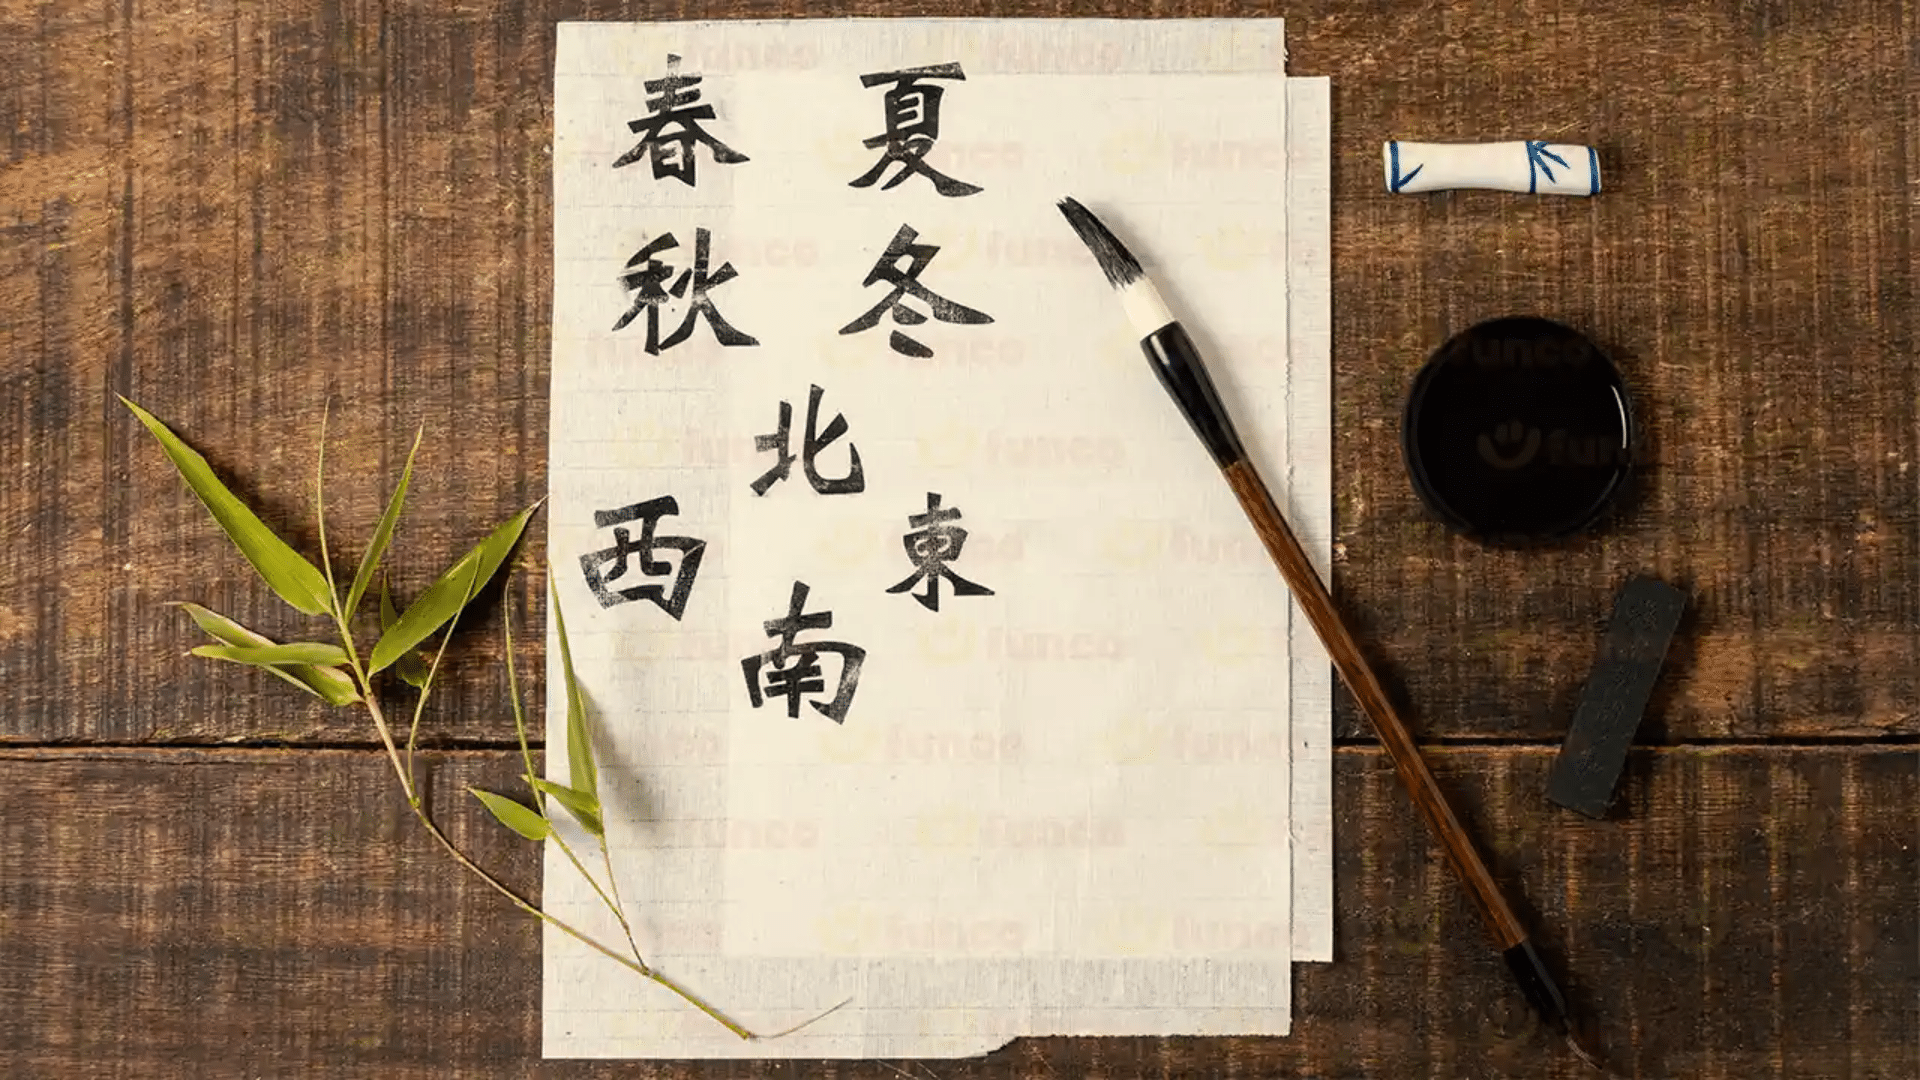 春 夏
秋 冬
北
西 東
南
funco